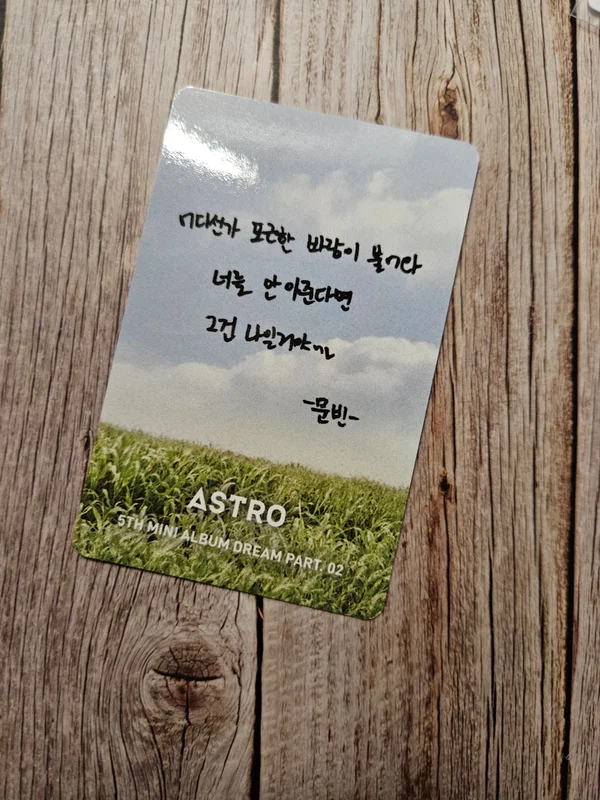 어디선가 포근한 바람이 불어와
너를 안아준다면
그건 나일거야ㅎㅎ
-문빈-
ASTRO
5TH MINI ALBUM DREAM PART. 02